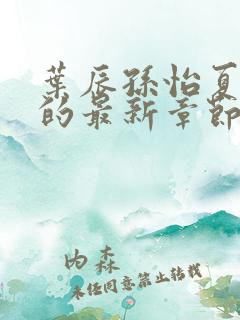 葉辰孫怡夏
的最新章節
內森
未经同意禁止转载